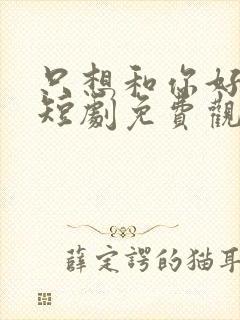 只想和你好
短劇免費觀
薛定諤的猫耳